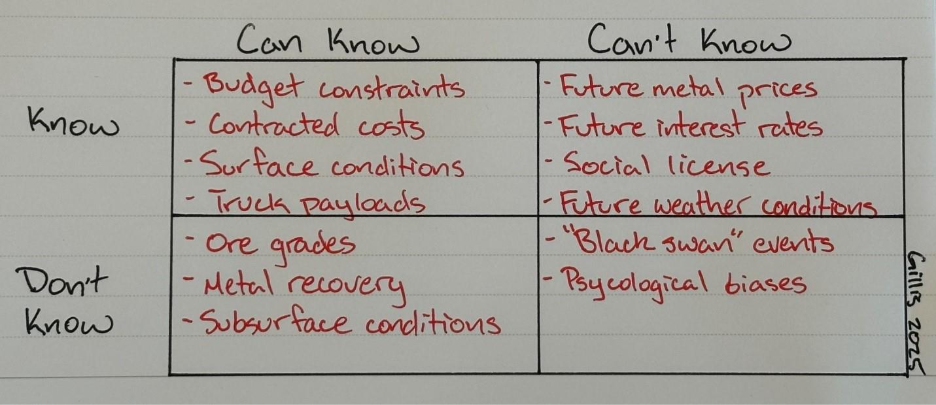 Can Know
Can't Know
Know
- Budget constraints
- Contracted costs
- Surface conditions
- Truck payloads
- Future metal prices
- Future interest rates
- Social license
- Future weather conditions
Don't
Know
- Ore grades
- Metal recovery
- Subsurface conditions
- "Black swan" events
- Psycological biases
Gillis 2025